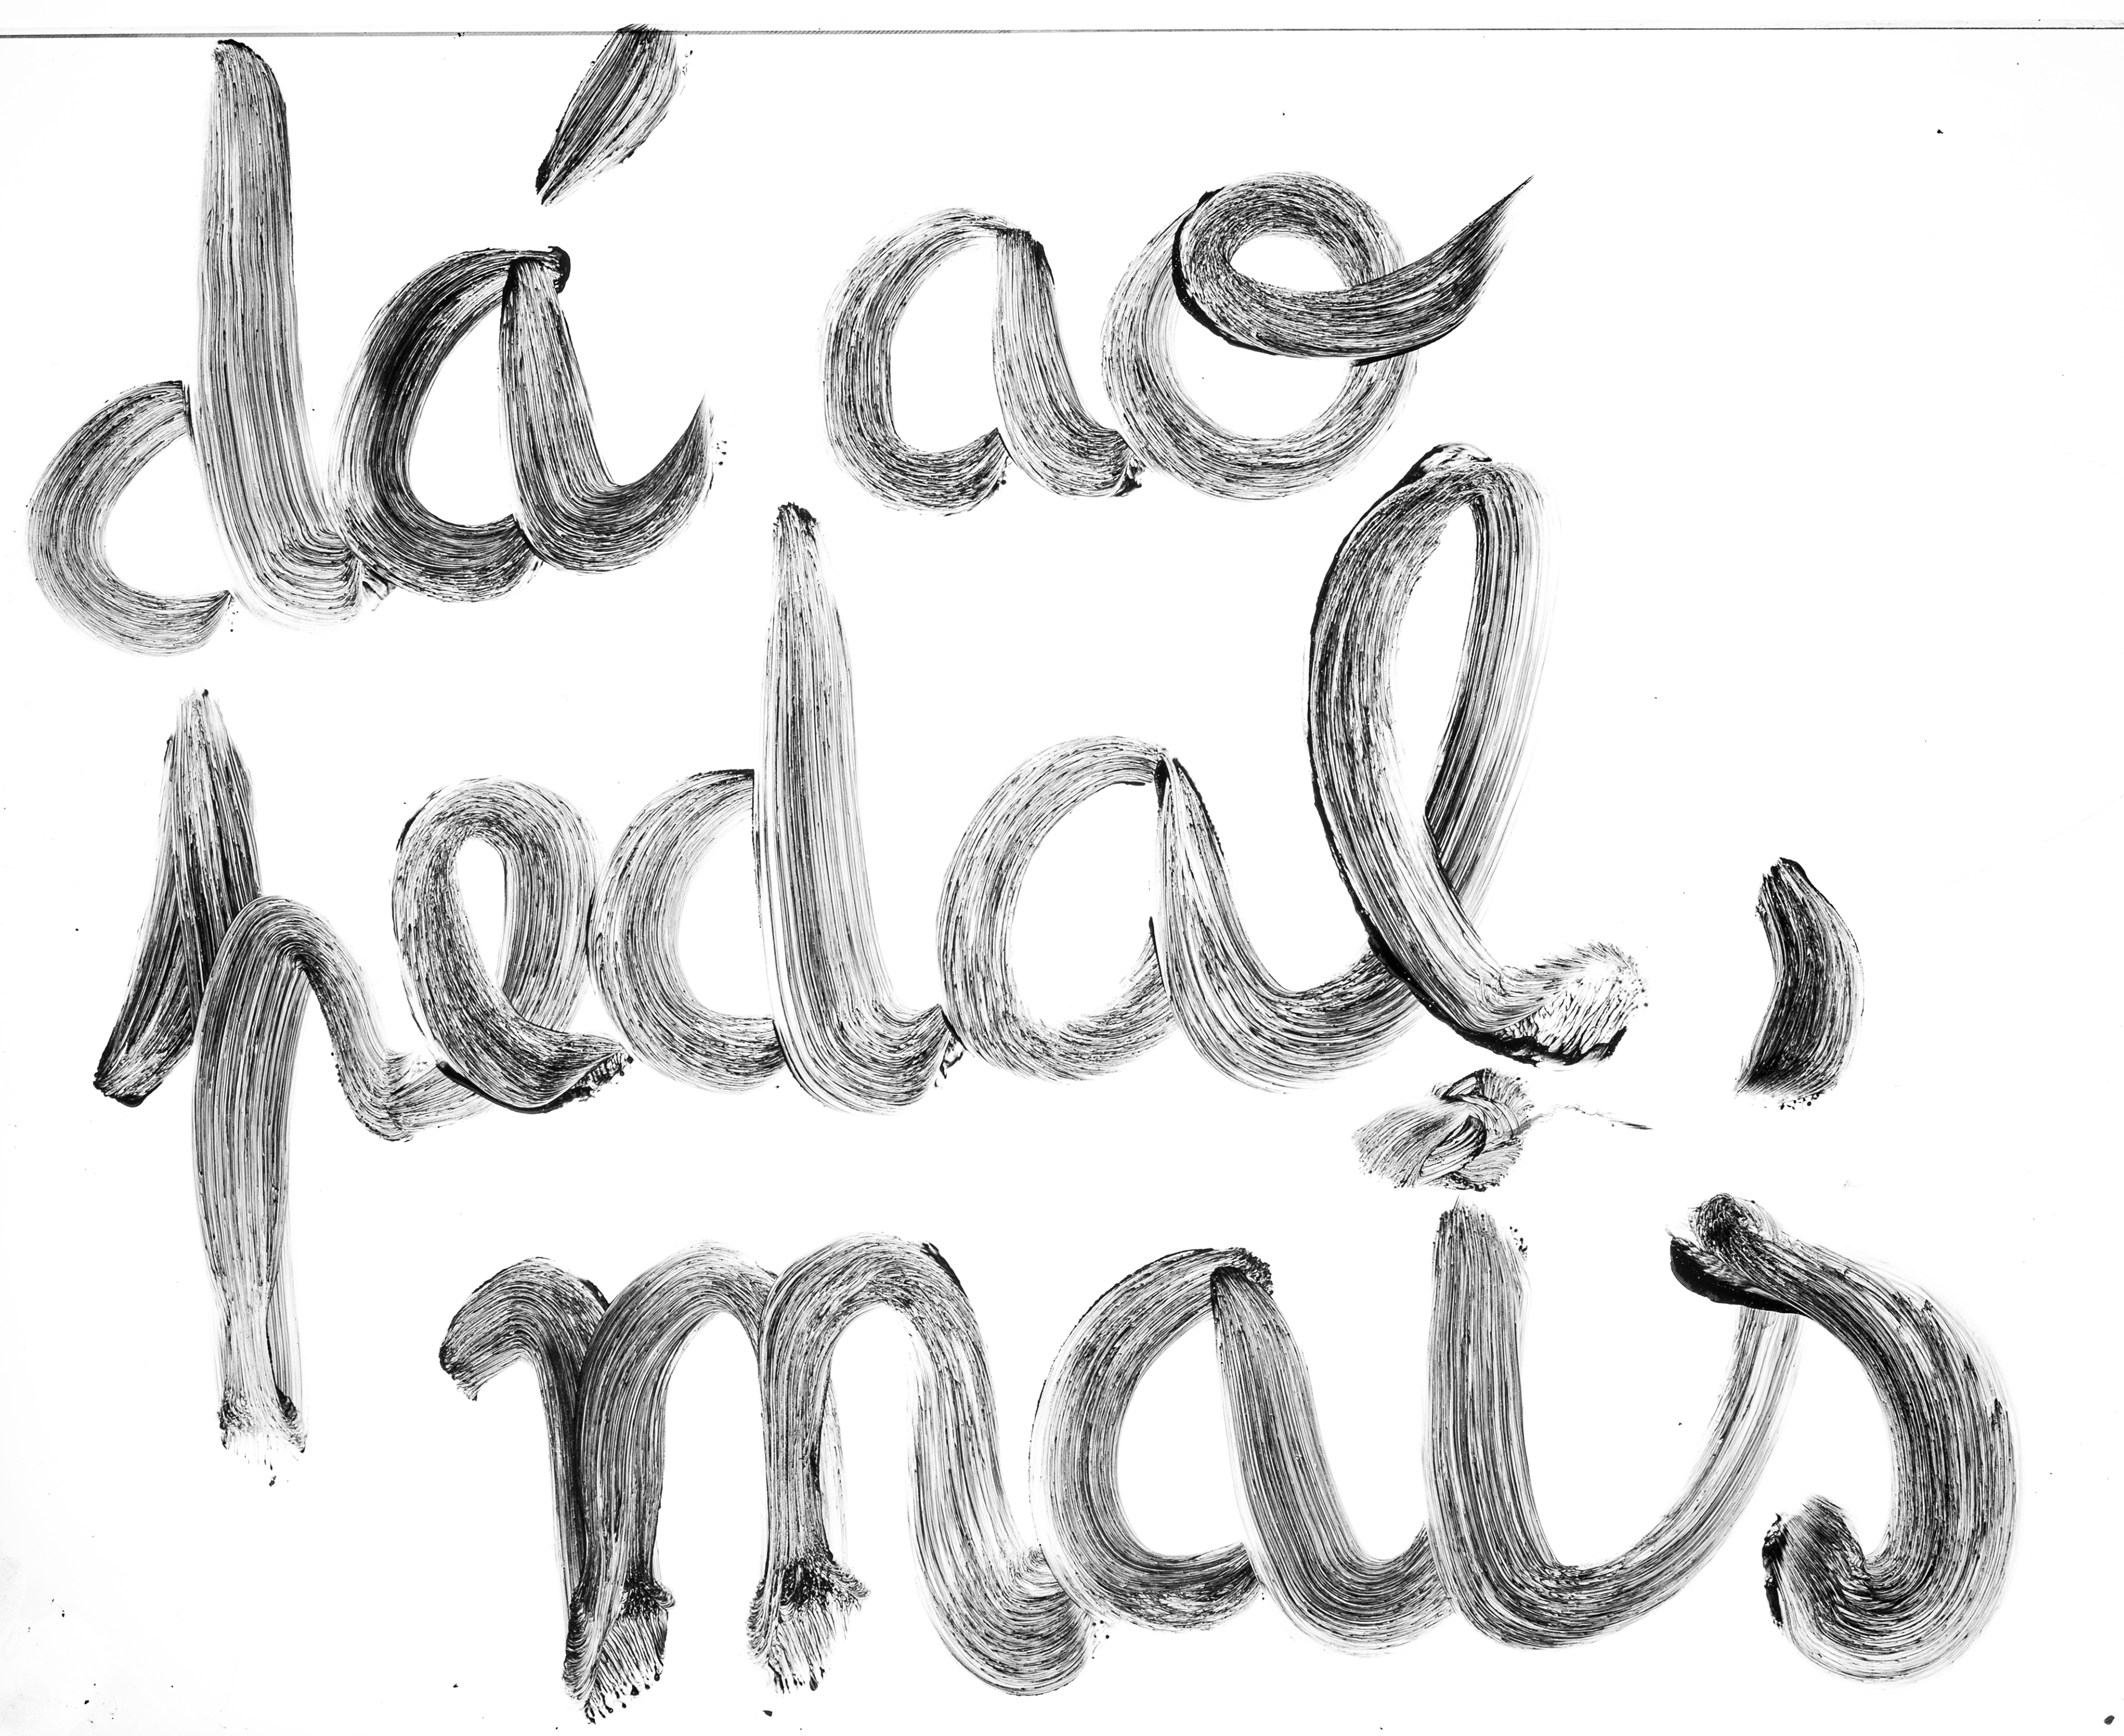 dá ao
pedal,
mais